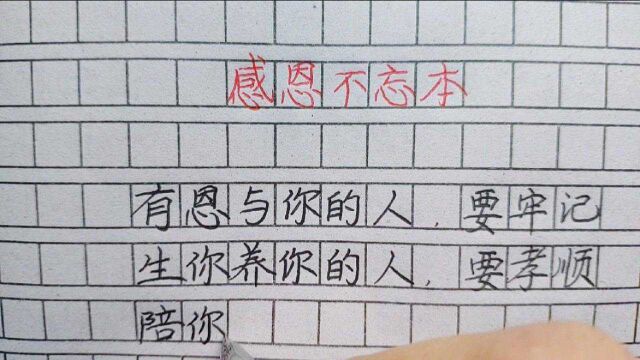 感恩不忘本
有恩与你的人，要牢记
生你养你的人，要孝顺
陪你